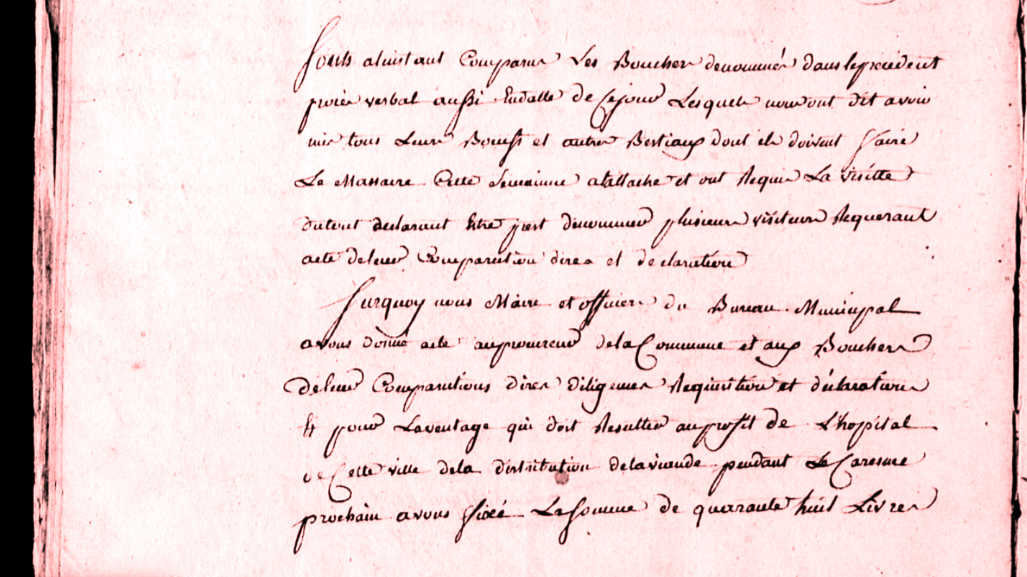 Sont alinstant Comparus Les Bouchers denommés dans leprecedent
procès verbal aussi Endatte de Cejour Lesquels nous ont dit avoir
mis tous Leurs Boeufs et autres Bestiaux dont ils doivent faire
Le Massacre Cette Semainne alattache et ont Requis La visitte
dutout declarant Etre prest denommer plusieurs visiteurs Requerant
acte deleur Comparution dires et declarations
Surquoy nous Maire et officiers du Bureau Municipal
avons donné acte auprocureur dela Commune et aux Bouchers
deleur Comparutions dires diligences Requisition et déclarations
Et pour Lavantage qui doit Resulter auprofit de L'hopital
de Cette ville dela distribution delaviande pendant Le Caresme
prochain avons fixé La Somme de quarante huit Livres